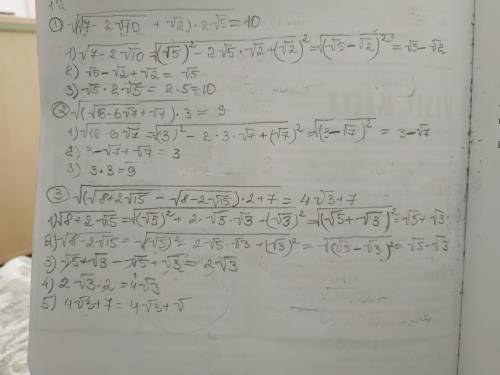 12
① √(√7 - 2√10 + √2) · 2√5 = 10
1) √7 - 2√10 = √(√5)² - 2√5 · √2 + (√2)² = √(√5 - √2)² = √5 - √2
2) √5 - √2 + √2 = √5
3) √5 · 2√5 = 2 · 5 = 10
② √(√16 - 6√7 + √7) · 3 = 9
1) √16 - 6√7 = √(3)² - 2 · 3 · √7 + (√7)² = √(3 - √7)² = 3 - √7
2) 3 - √7 + √7 = 3
3) 3·3 = 9
③ √(√8 + 2√15 - √8 - 2√15) · 2 + 7 = 4√3 + 7
1) √8 + 2·√15 = √(√5)² + 2·√5·√3 + (√3)² = √(√5 + √3)² = √5 + √3
2) √8 - 2√15 = √(√5)² - 2√5·√3 + (√3)² = √(√5 - √3)² = √5 - √3
3) √5 + √3 - √5 + √3 = 2√3
4) 2√3 · 2 = 4√3
5) 4√3 + 7 = 4√3 + √